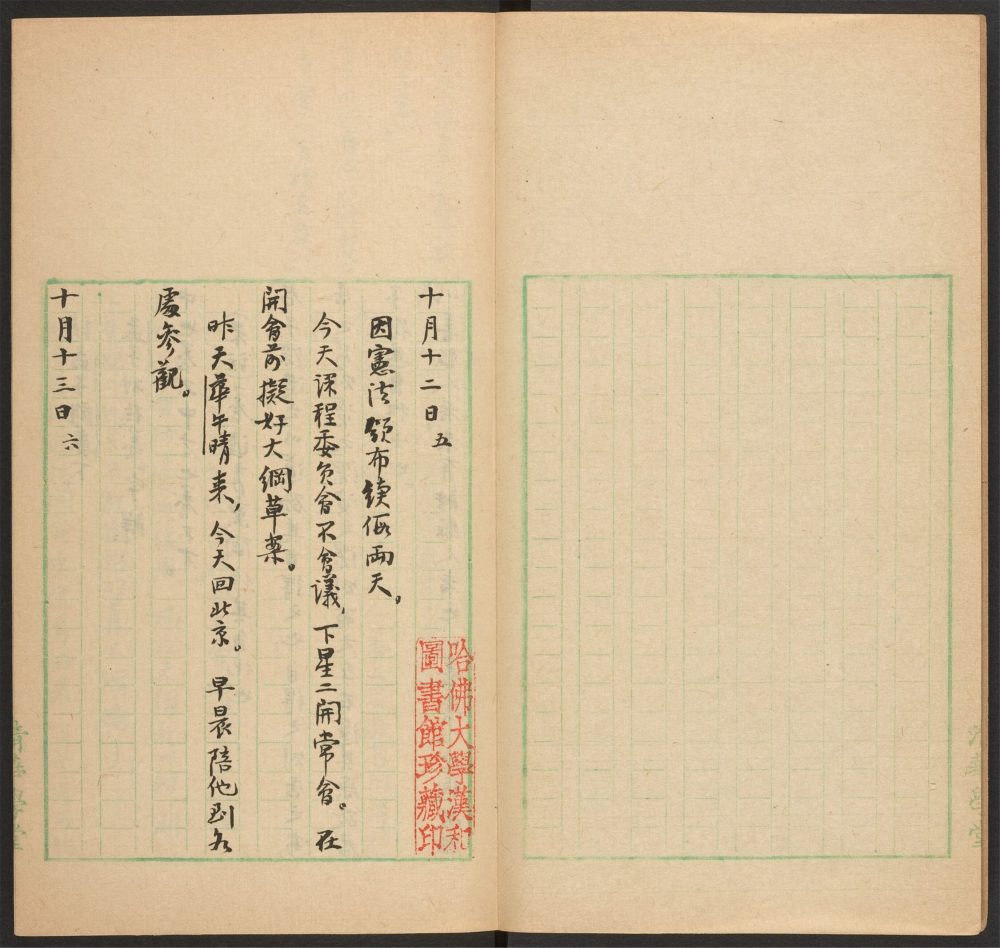 十月十二日 五
因憲法頒布續假兩天。
今天課程委員會不會議，下星二開常會。在
開會前擬好大綱草案。
昨天華午晴來，今天回北京。早晨陪他到各
處參觀。
十月十三日 六
哈佛大學漢和
圖書館珍藏印